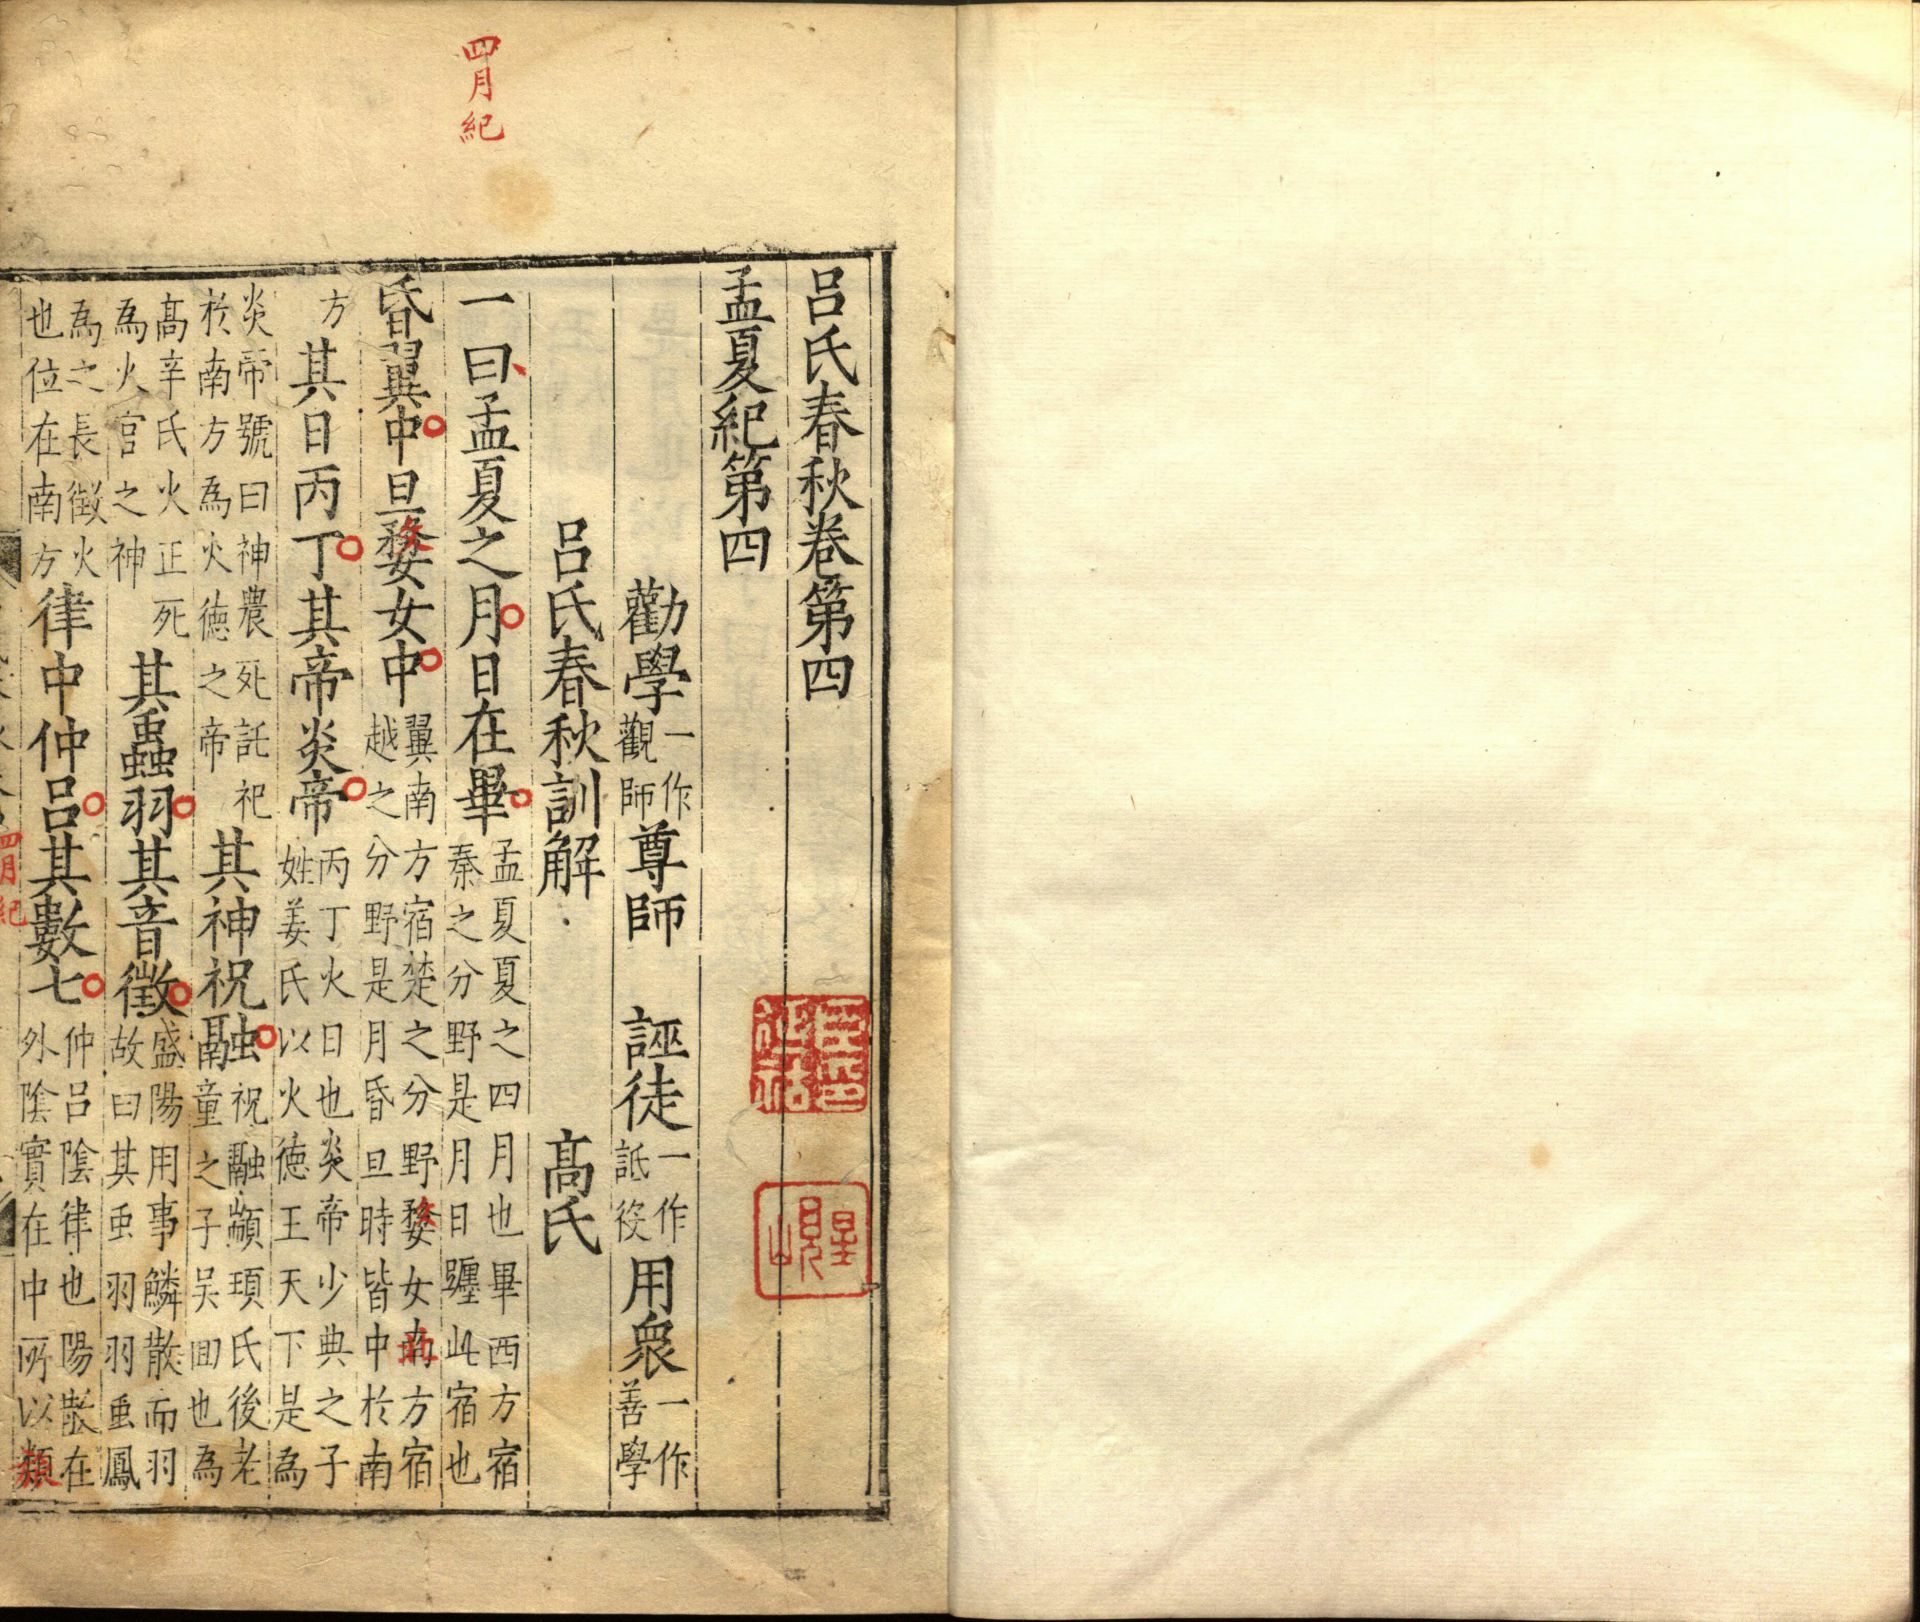 四月紀
呂氏春秋卷第四
孟夏紀第四
勸學一作觀師尊師 誣徒一作詆役用衆一作善學
呂氏春秋訓解 高氏
一曰孟夏之月日在畢孟夏夏之四月也畢西方宿秦之分野是月日躔此宿也
昏翼中旦婺女中翼南方宿楚之分野婺女南方宿越之分野是月昏旦時皆中於南
方其日丙丁其帝炎帝丙丁火日也炎帝少典之子姓姜氏以火德王天下是為
炎帝號曰神農死託祀於南方為火德之帝其神祝融祝融顓頊氏後老童之子吳回也為
高辛氏火正死為火官之神其蟲羽其音徵盛陽用事鱗散而羽故曰其虫羽羽虫鳳
為之長徵火也位在南方律中仲呂其數七仲呂陰律也陽散在外陰實在中所以類
四月紀